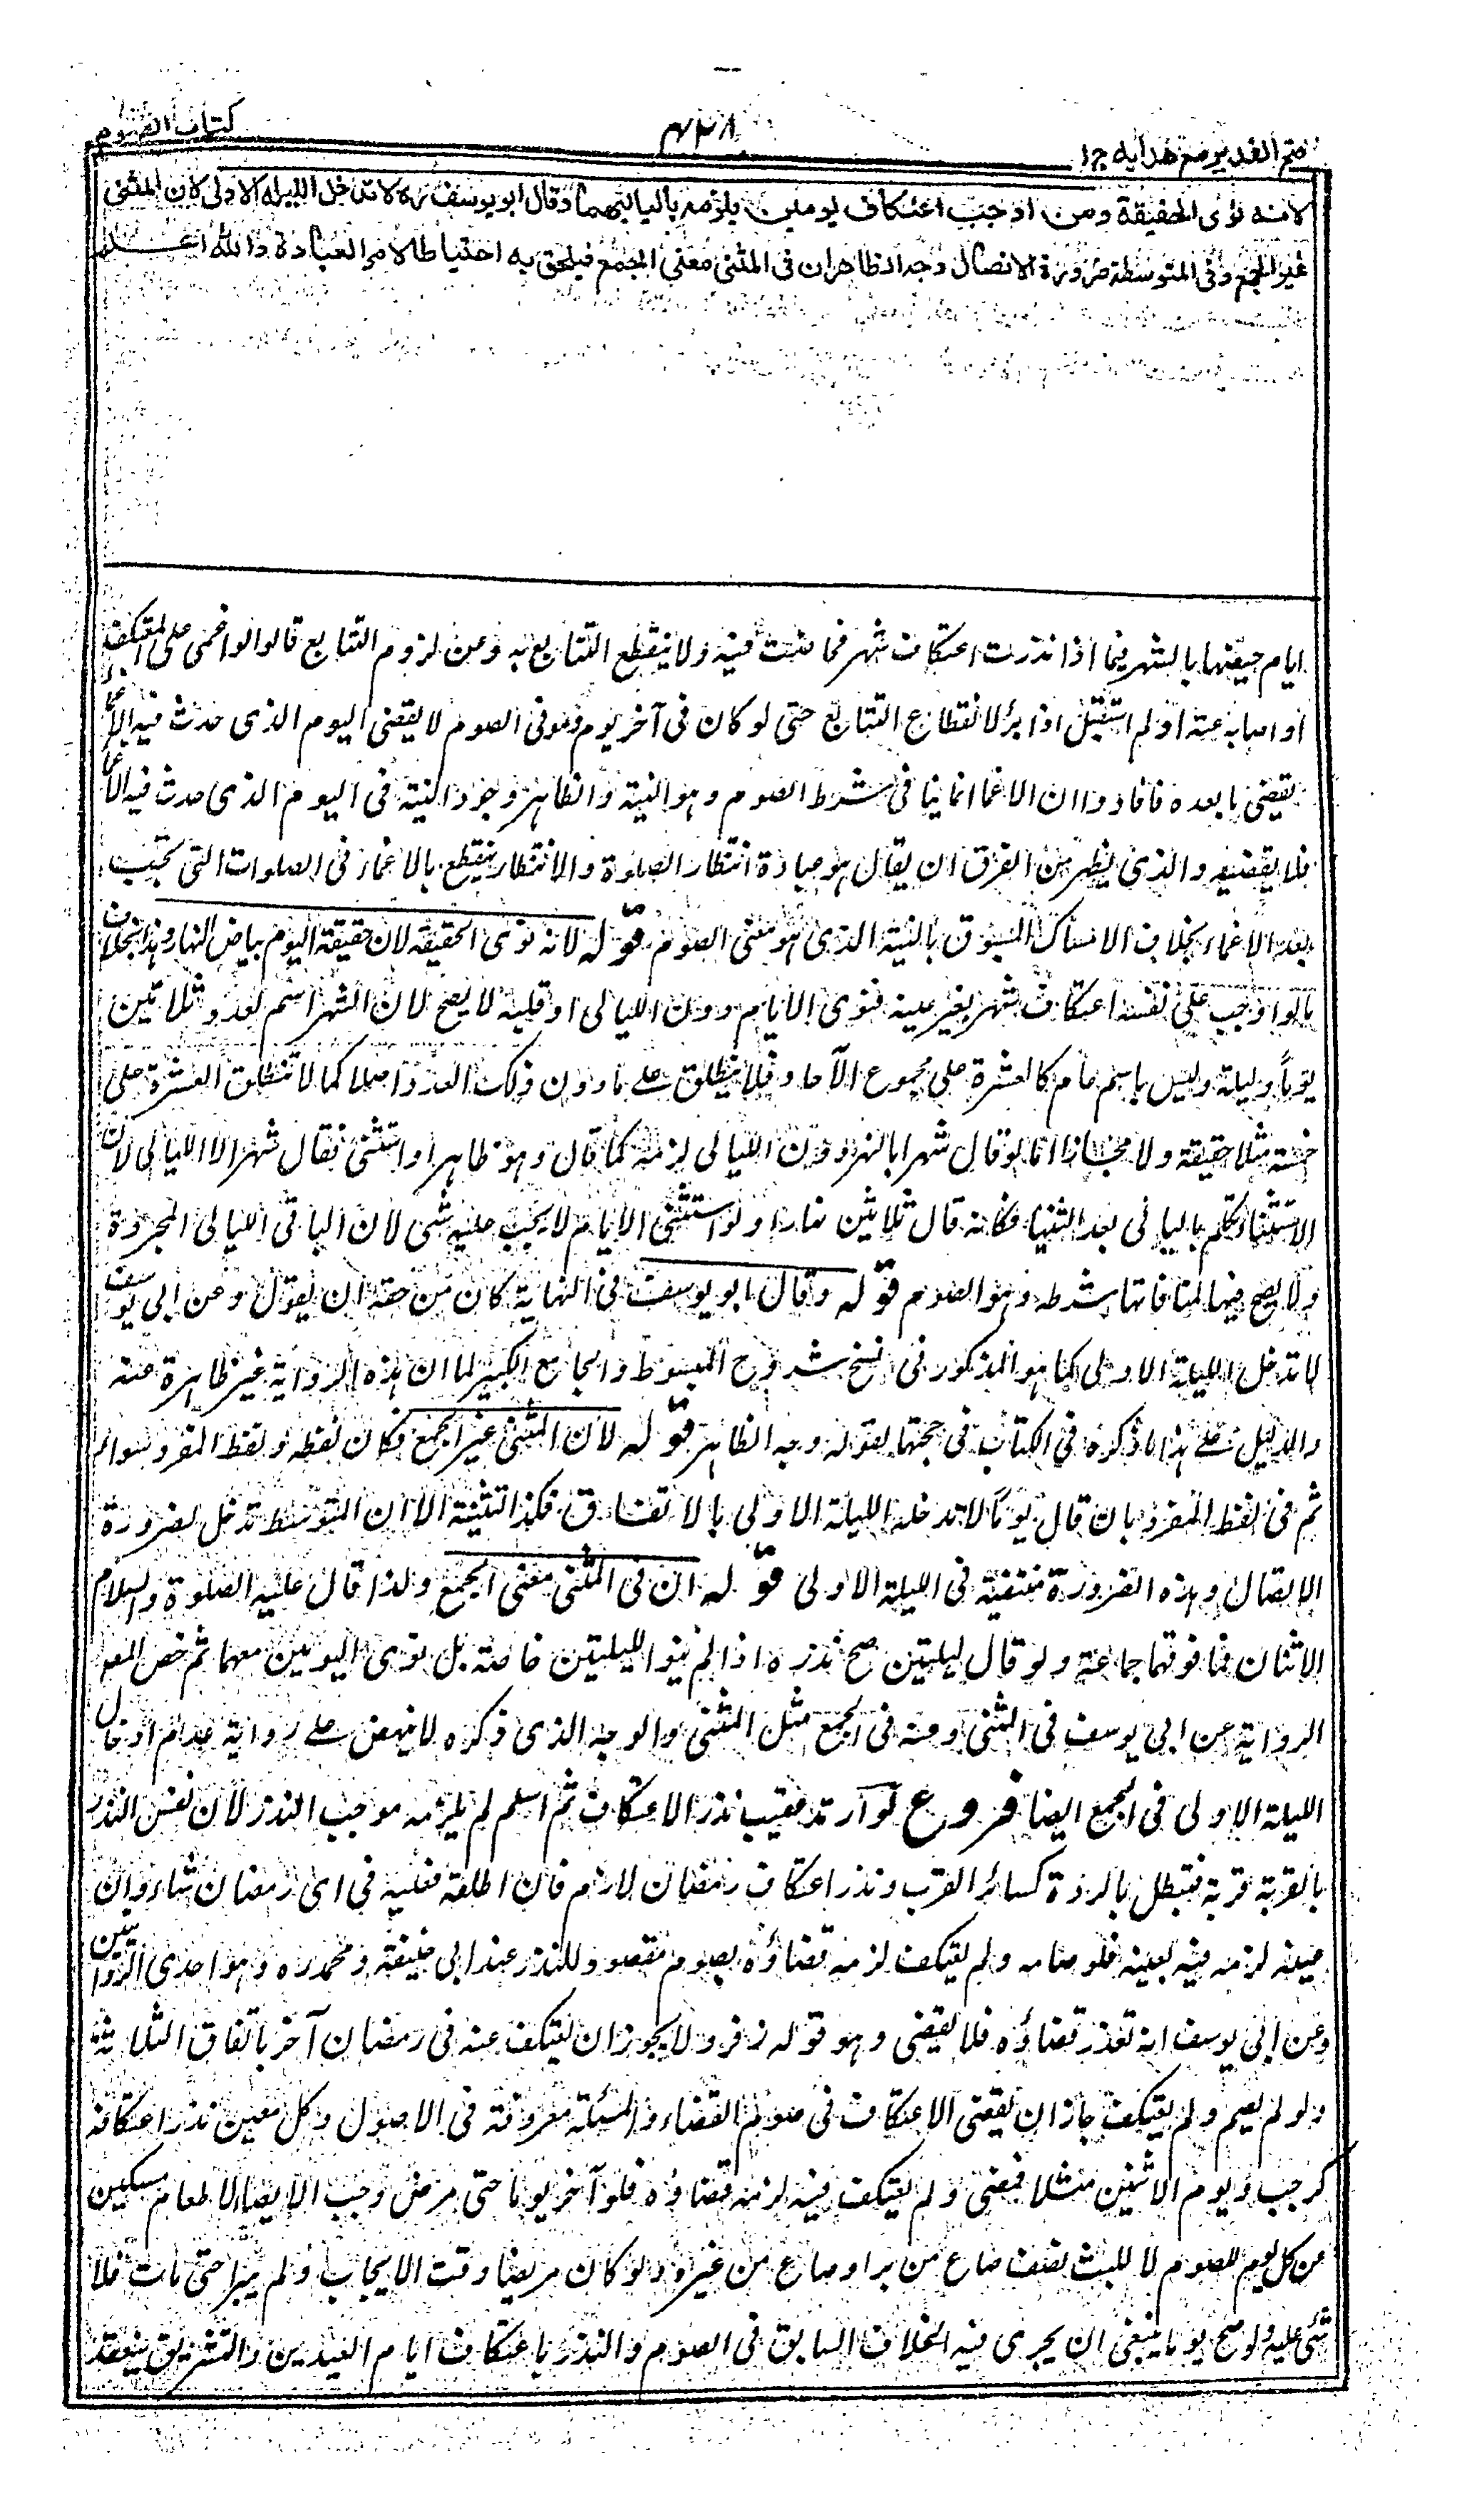 فتح القدير مع هدايه ج ١
٣٢٨
كتاب الصوم
لانه نوى الحقيقة ومن اوجب اعتكاف يومين يلزمه بلياليهما وقال ابو يوسف ره لا تدخل الليلة الاولى لان المثنى
غير الجمع وفى المتوسطة ضرورة الاتصال وجه الظاهر ان فى المثنى معنى الجمع فيلحق به احتياطا لامر العبادة والله اعلم
ايام حيضتها بالشهر فيما اذا نذرت اعتكاف شهر فحاضت فيه ولا ينقطع التتابع به ومن لزوم التتابع قالوا لو اغمى على المعتكف
او اصابه عته او لمم استقبل اذا برأ لانقطاع التتابع حتى لو كان فى آخر يوم وفى الصوم لا يقضى اليوم الذى حدث فيه الاغماء
يقضى ما بعده فافادوا ان الاغماء انما ينافى شرط الصوم وهو النية والظاهر وجود النية فى اليوم الذى حدث فيه الاغماء
فلا يقضيه والذى يظهر من الفرق ان يقال هو عبادة انتظار الصلوة والانتظار ينقطع بالاغماء فى الصلوات التى تجب
بعد الاغماء بخلاف الامساك المسبوق بالنية الذى هو معنى الصوم قوله لانه نوى الحقيقة لان حقيقة اليوم بياض النهار وهذا بخلاف
ما لو اوجب على نفسه اعتكاف شهر بغير عينه فنوى الايام دون الليالى او قلبه لا يصح لان الشهر اسم لعدد ثلاثين
يوماً وليلة وليس باسم عام كالعشرة على مجموع الآحاد فلا ينطلق على ما دون ذلك العدد اصلا كما لا تنطلق العشرة على
خمسة مثلا حقيقة ولا مجازا اما لو قال شهرا بالنهر دون الليالى لزمه كما قال وهو ظاهر او استثنى فقال شهرا الا الليالى لان
الاستثناء تكلم بالباقى بعد الثنيا فكانه قال ثلاثين نهارا ولو استثنى الايام لا يجب عليه شئ لان الباقى الليالى المجردة
ولا يصح فيها لمنافاتها شرطه وهو الصوم قوله وقال ابو يوسف فى النهاية كان من حقه ان يقول وعن ابى يوسف
لا تدخل الليلة الاولى كما هو المذكور فى نسخ شروح المبسوط والجامع الكبير لما ان هذه الرواية غير ظاهرة عنه
والدليل على هذا ما ذكره فى الكتاب فى حجتهما بقوله وجه الظاهر قوله لان المثنى غير الجمع فكان لفظه ولفظ المفرد سواء
ثم فى لفظ المفرد بان قال يوماً لا تدخله الليلة الاولى بالاتفاق فكذا التثنية الا ان المتوسط تدخل لضرورة
الاتصال وهذه الضرورة منتفية فى الليلة الاولى قوله ان فى المثنى معنى الجمع ولذا قال عليه الصلوة والسلام
الاثنان فما فوقهما جماعة ولو قال ليلتين صح نذره اذا لم ينو الليلتين خاصة بل نوى اليومين معهما ثم خص المصـ
الرواية عن ابى يوسف فى المثنى ومنه فى الجمع مثل المثنى والوجه الذى ذكره لا ينهض على رواية عدم ادخال
الليلة الاولى فى الجمع ايضا فروع لو ارتد عقيب نذر الاعتكاف ثم اسلم لم يلزمه موجب النذر لان نفس النذر
بالقربة قربة فتبطل بالردة كسائر القرب ونذر اعتكاف رمضان لازم فان اطلقه فعليه فى اى رمضان شاء وان
عينه لزمه فيه بعينه فلو صامه ولم يعتكف لزمه قضاؤه بصوم مقصود للنذر عند ابى حنيفة ومحمد ره وهو احدى الروايتين
وعن ابى يوسف انه تعذر قضاؤه فلا يقضى وهو قوله زفر ولا يجوز ان يعتكف عنه فى رمضان آخر باتفاق الثلاثة
ولو لم يصم ولم يعتكف جاز ان يقضى الاعتكاف فى صوم القضاء والمسئلة معروفة فى الاصول وكل معين نذر اعتكافه
كرجب ويوم الاثنين مثلا فمضى ولم يعتكف فيه لزمه قضاؤه فلو آخر يوما حتى مرض وجب الايصاء الاطعام مسكين
عن كل يوم للصوم لا للبث نصف صاع من بر او صاع من غيره ولو كان مريضا وقت الايجاب ولم يبرأ حتى مات فلا
شئ عليه ولو صح يوما ينبغى ان يجرى فيه الخلاف السابق فى الصوم والنذر باعتكاف ايام العيدين والتشريق ينعقد